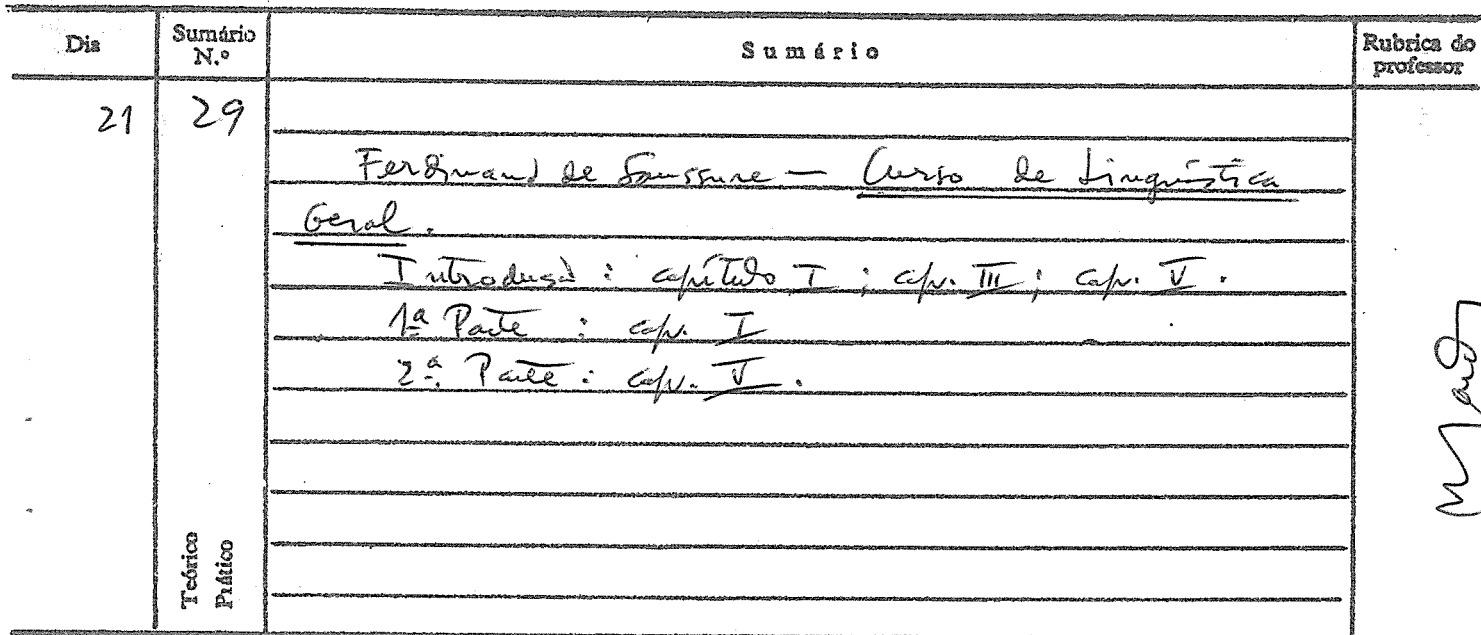 Dia Sumário N.º Sumário Rubrica do professor
21 29
Ferdinand de Saussure — Curso de Linguística
Geral.
Introdução : capítulo I ; cap. III ; cap. V .
1ª Parte : cap. I
2ª Parte : cap. V .
Teórico
Prático